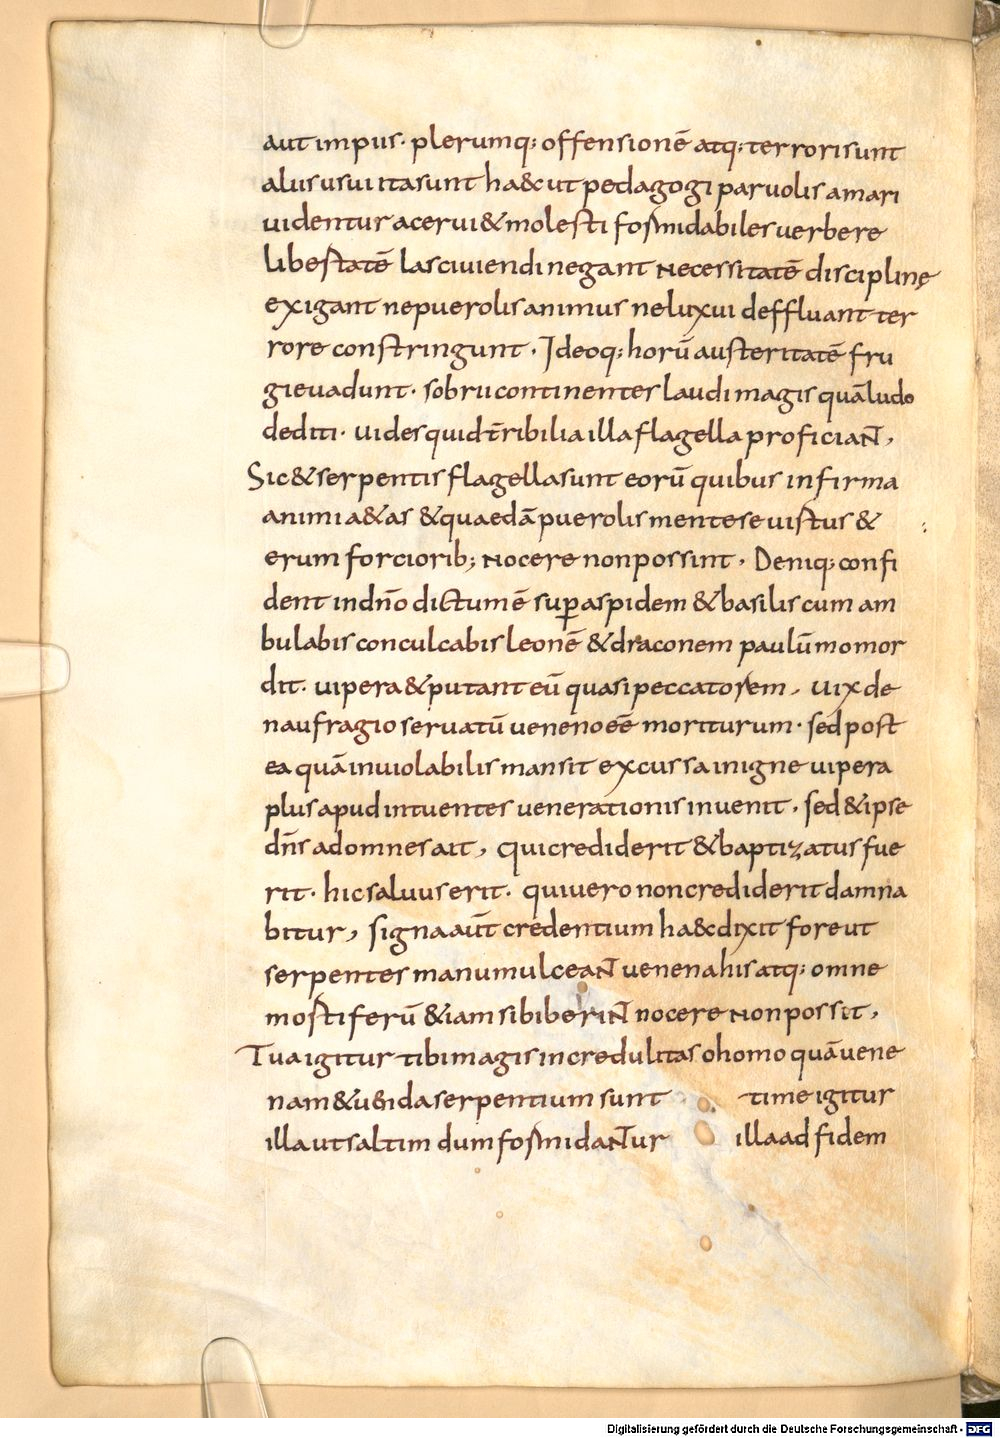 aut impiis· plerumq; offensionē atq; terrori sunt
aliis usui ita sunt ha&c ut pedagogi paruolis amari
uidentur acerui & molesti formidabiles uerbere
libertatē lasciuiendi negant necessitatē disciplinę
exigant ne puerolis animus ne luxui deffluant ter
rore constringunt· Ideoq; horū austeritatē fru
gi euadunt· sobrii continentes laudi magis quā ludo
dediti· uides quid t̄ribilia illa flagella proficiant,
Sic & serpentis flagella sunt eorū quibus infirma
animi a&as &quaedā puerolis mentes euistus &
erum forciorib; nocere non possint· Deniq; confi
dent in dn̄o dictum ē sup̱ aspidem & basiliscum am
bulabis conculcabis leonē & draconem paulū momor
dit· uipera & putant eū quasi peccatorem, uix de
naufragio seruatū ueneno eē moriturum· sed post
ea quā inuiolabilis mansit excussa in igne uipera
plus apud intuentes uenerationis inuenit· sed & ipse
dn̄s ad omnes ait, qui crediderit & baptizatus fue
rit· hic saluus erit· qui uero non crediderit damna
bitur, signa aūt credentium ha&c dixit fore ut
serpentes manu mulceant uenena his atq; omne
mostiferū &iam si biberint nocere non possit,
Tua igitur tibi magis incredulitas o homo quā uene
nam & ubi da serpentium sunt time igitur
illa ut saltim dum formidantur illa ad fidem
Digitalisierung gefördert durch die Deutsche Forschungsgemeinschaft - DFG